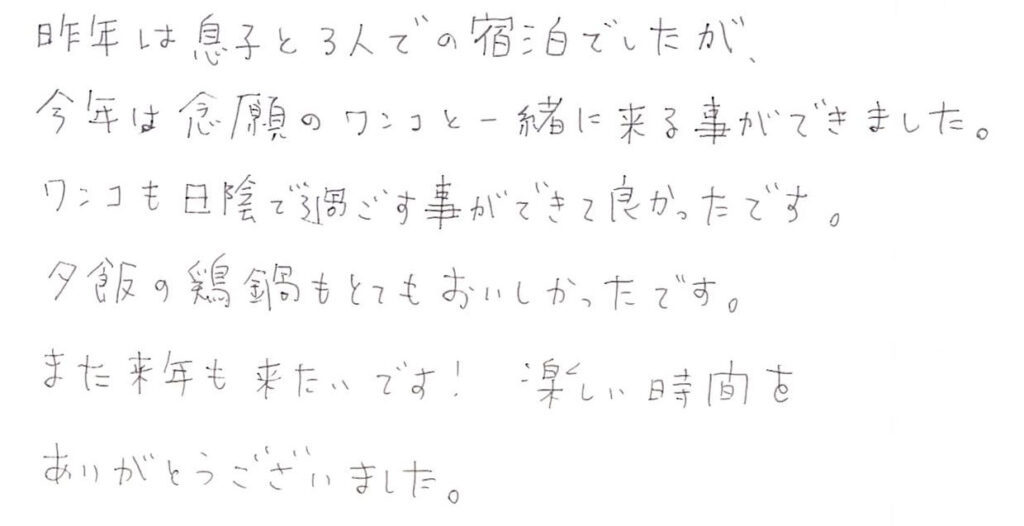 昨年は息子と3人での宿泊でしたが、
今年は念願のワンコと一緒に来る事ができました。
ワンコも日陰で過ごす事ができて良かったです。
夕飯の鶏鍋もとてもおいしかったです。
また来年も来たいです! 楽しい時間を
ありがとうございました。